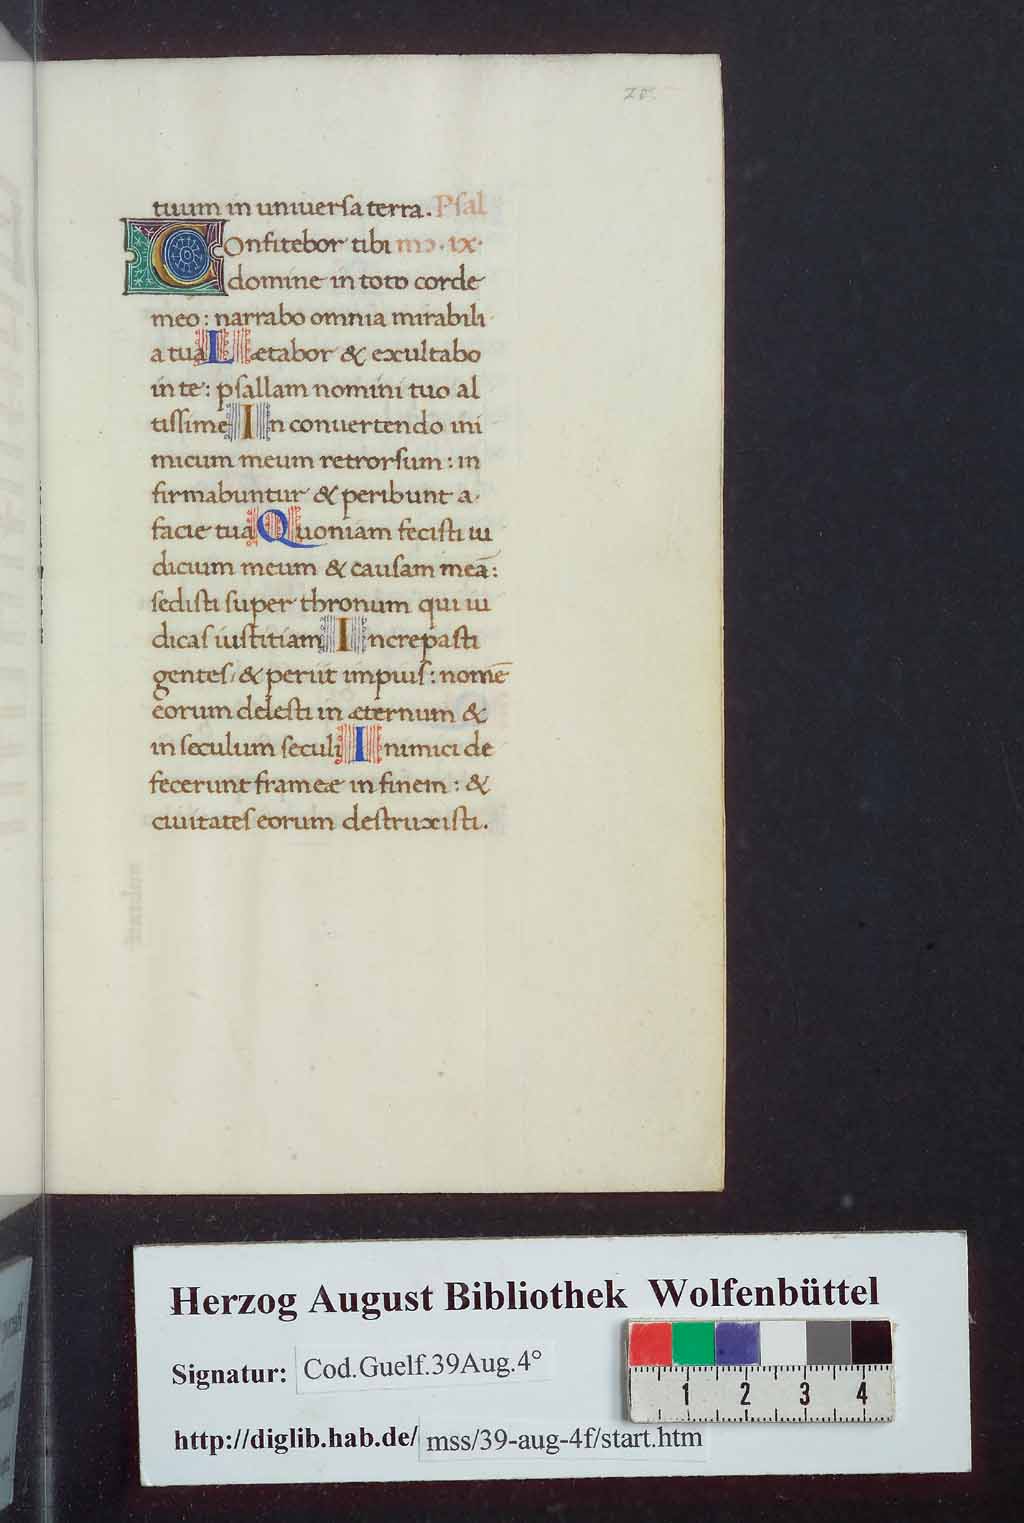 tuum in uniuerſa terra. Pſal
Confitebor tibi mo.ix.
domine in toto corde
meo: narrabo omnia mirabili
a tua Lætabor & exultabo
in te: pſallam nomini tuo al
tiſſime In conuertendo ini
micum meum retrorſum: in
firmabuntur & peribunt a
facie tua Quoniam feciſti iu
dicium meum & cauſam meā:
ſediſti ſuper thronum qui iu
dicaſ iuſtitiam Increpaſti
genteſ, & periit impiuſ: nomē
eorum deleſti in æternum &
in ſeculum ſeculi Inimici de
fecerunt frameæ in finem: &
ciuitateſ eorum deſtruxiſti.
Herzog August Bibliothek Wolfenbüttel
Signatur: Cod.Guelf.39Aug.4°
1 2 3 4
http://diglib.hab.de/mss/39-aug-4f/start.htm